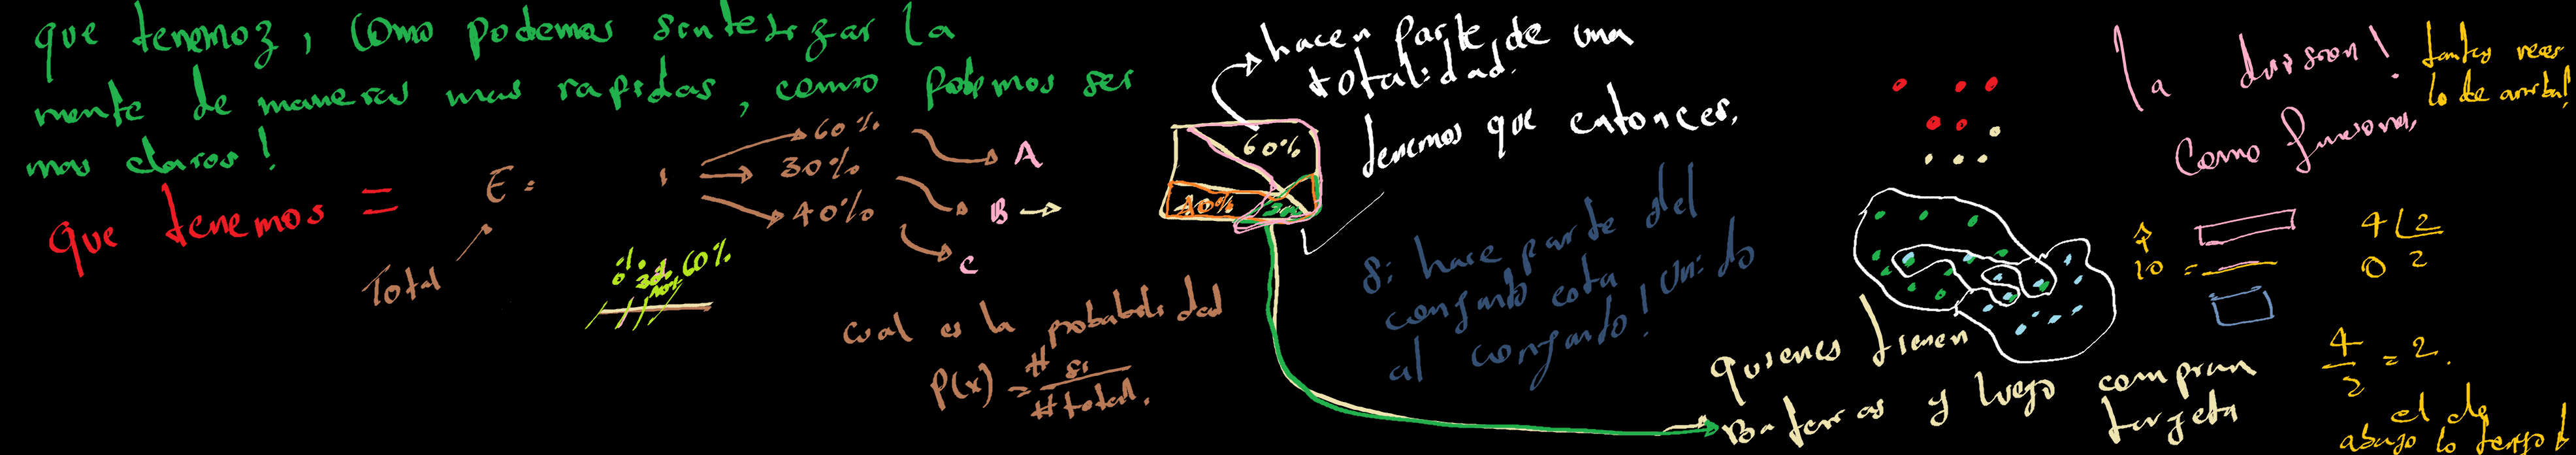 que tenemoz, como podemos sintetizar la
mente de maneras mas rapidas, como podemos ser
mas claros!
que tenemos =
E =
Total
60%
30%
40%
A
B
C
60%
cual es la probabilidad
P(x) = # si
# total.
hacen parte de una
totalidad.
tenemos que entonces,
60%
40%
Si hace parte del
conjunto esta unido
al conjunto!
quienes tienen
Baterias y luego compran
tarjeta
la division!
como funsiona,
tantas veces
lo de arriba!
10 =
4 2
0 2
4
2 = 2.
el de
abajo lo tengo